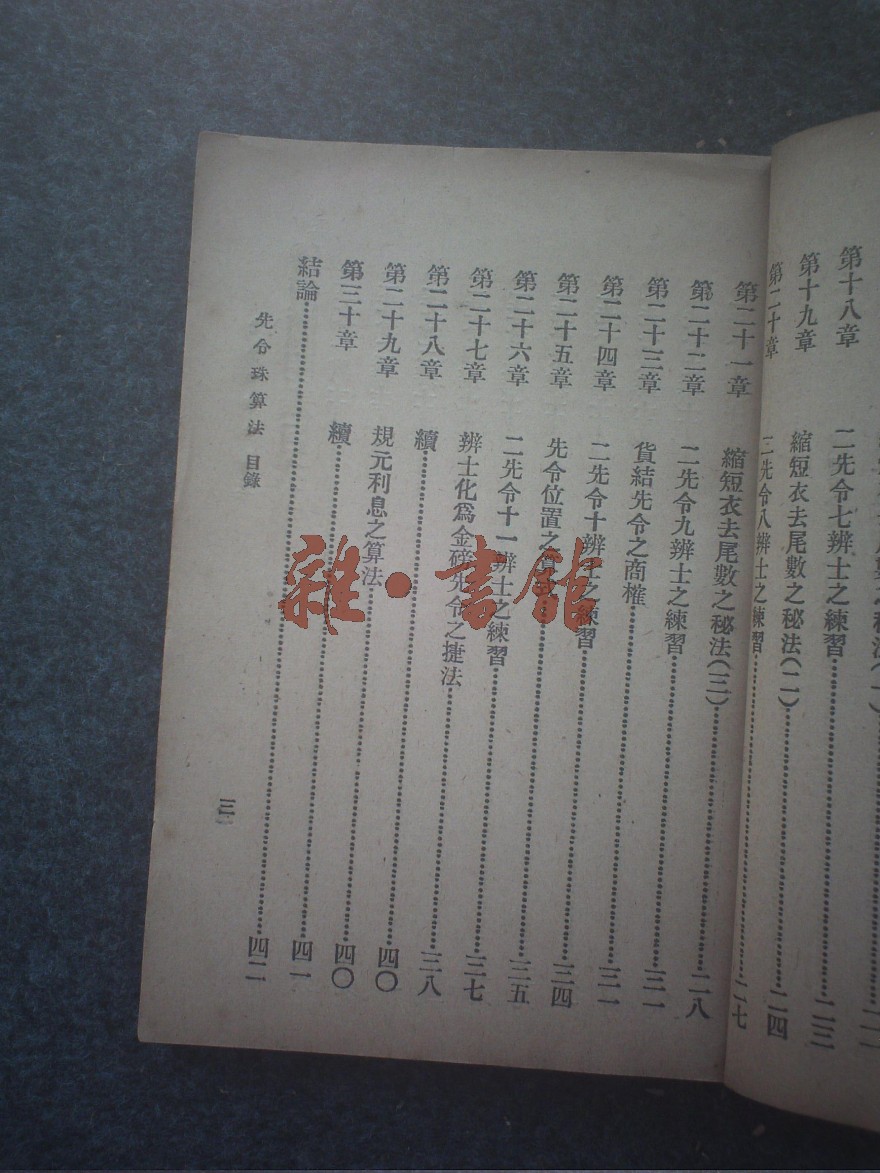 第十八章 二先令七辨士之練習……二三
第十九章 縮短衣去尾數之秘法(二)……二四
第二十章 二先令八辨士之練習……二七
第二十一章 縮短衣去尾數之秘法(三)……二八
第二十二章 二先令九辨士之練習……三一
第二十三章 貨結先令之商榷……三一
第二十四章 二先令十辨士之練習……三四
第二十五章 先令位置之……三五
第二十六章 二先令十一辨士之練習……三七
第二十七章 辨士化爲金磅先令之捷法……三八
第二十八章 續……四〇
第二十九章 規元利息之算法……四〇
第三十章 續……四一
結論……四二
先令珠算法 目錄
三
雜·書館